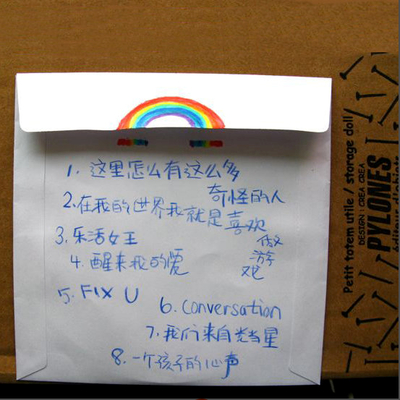 1. 这里怎么有这么多
奇怪的人
2. 在我的世界我就是喜欢
做
游
戏
3. 乐活女王
4. 醒来我的愛
5. FIX U
6. Conversation
7. 我们来自星
8. 一个孩子的心声
Petit totem utile / storage doll /
DESIGN : CREA CREA
PYLONES